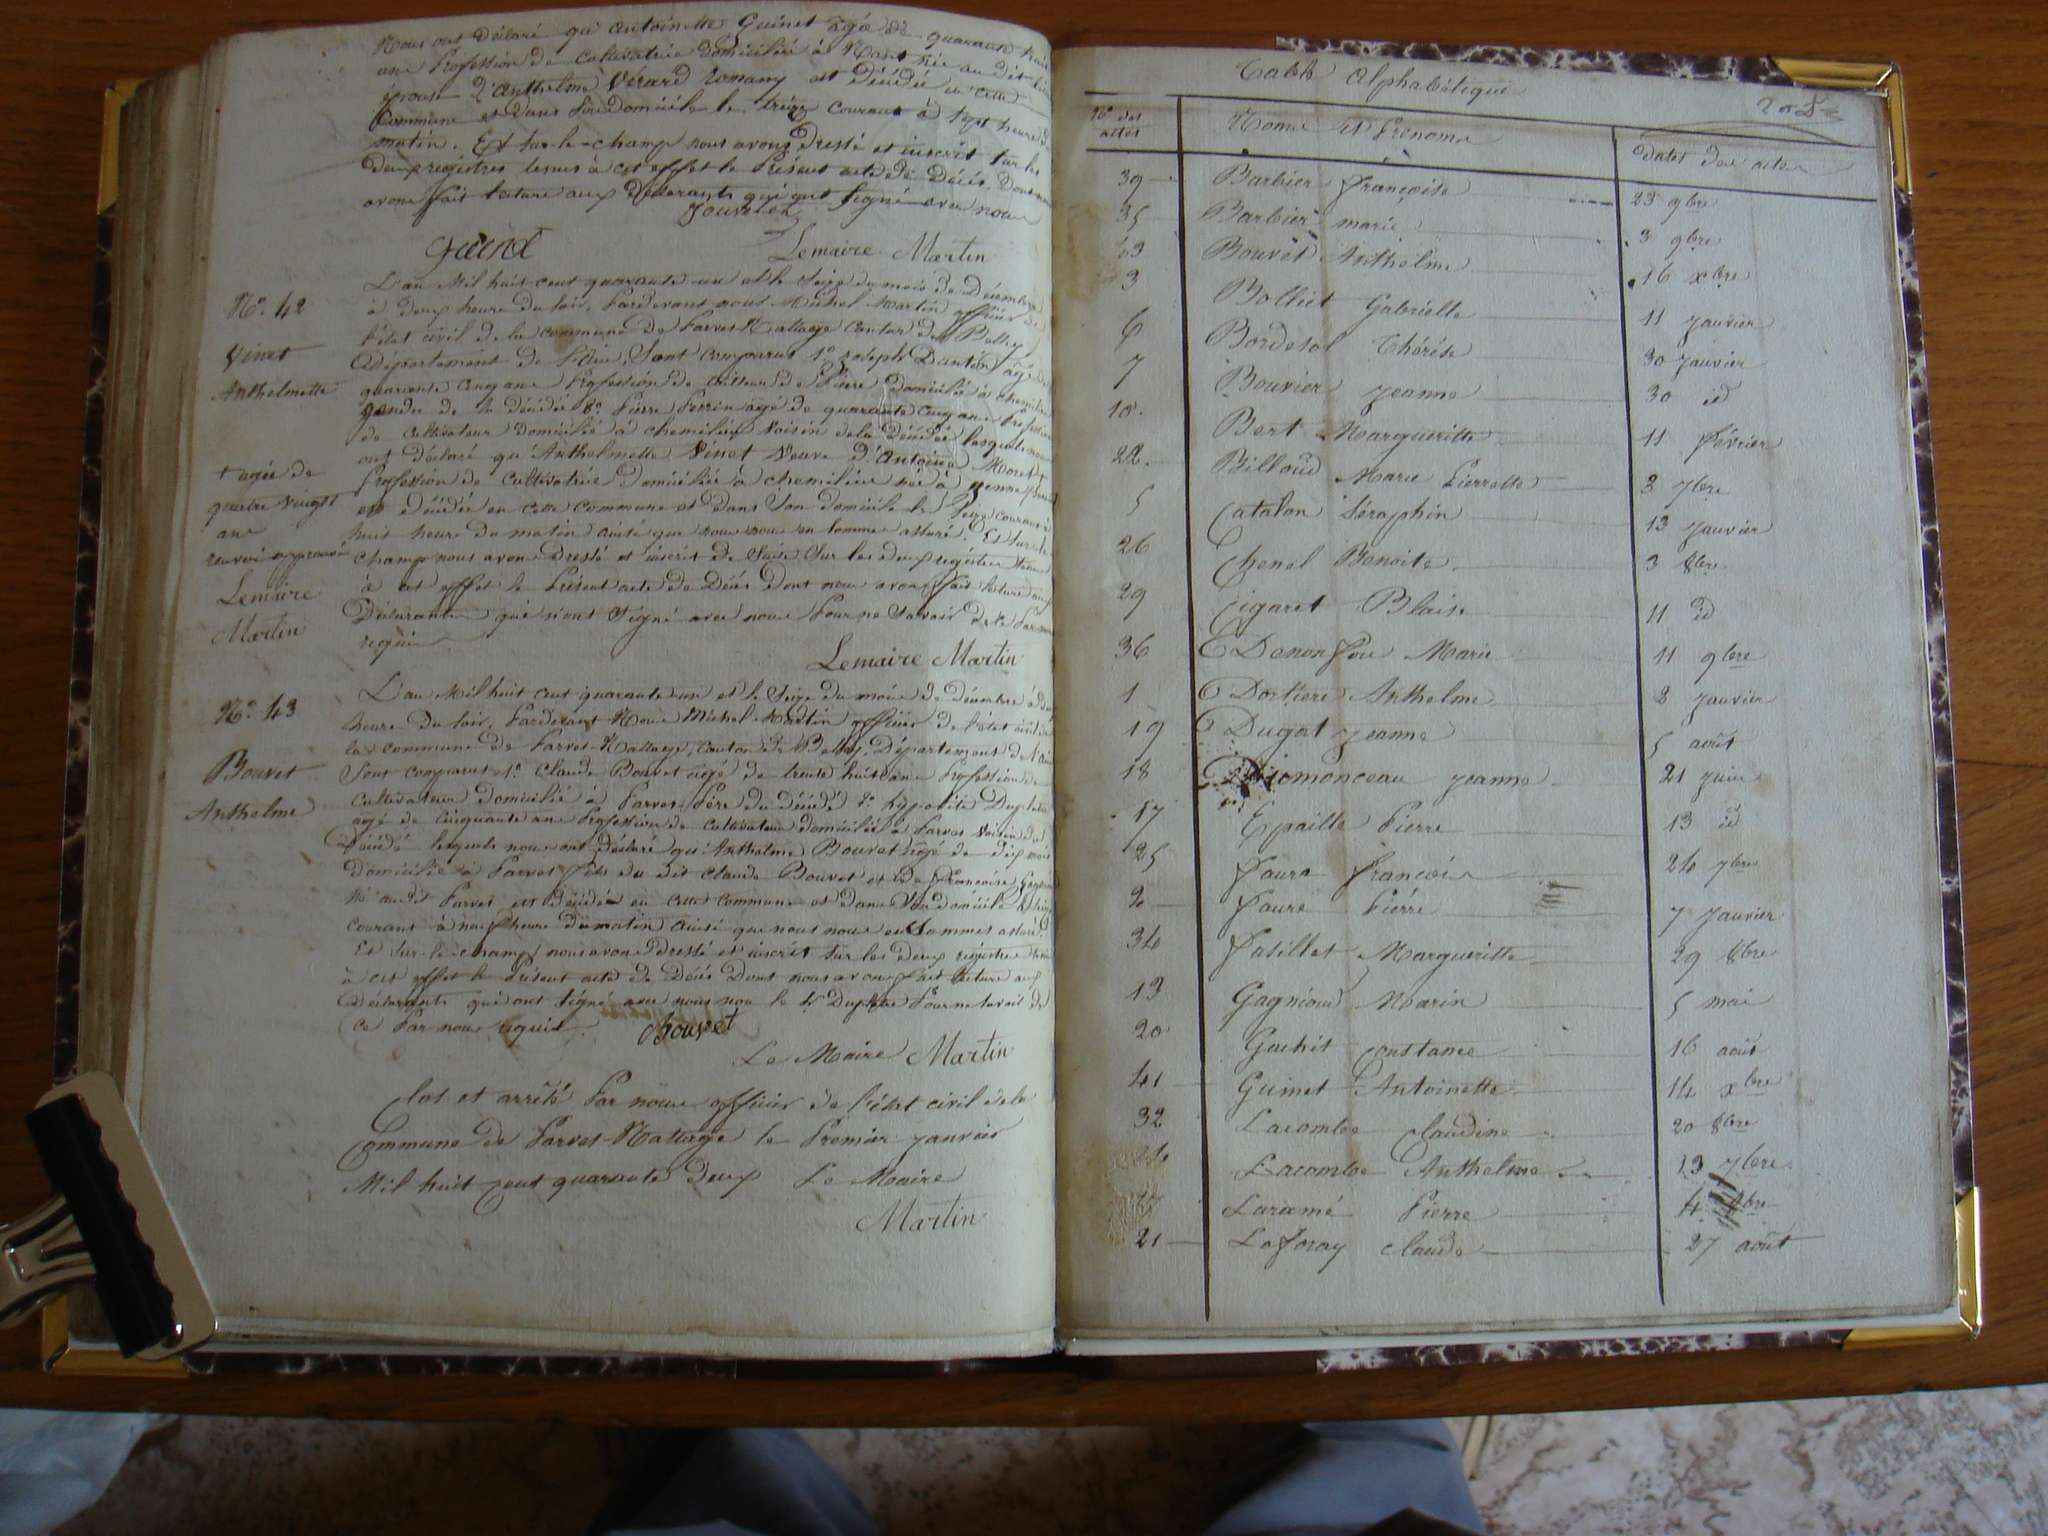 Nous ont déclaré qu'antoinette Guinet agée de quarante
une Profession de Cultivatrie domiciliée à née au dit lieu
épouse d'Anthelme Vérard Romany est décédée en cette
Commune et dans son domicile le treize courant à sept heures
matin. Et sur-le-champ nous avons dressé et inscrit sur les
deux registres tenus à cet effet le Présent acte de Décés. Dont nous
avons fait lecture aux déclarants qui ont signé avec nous
Guinet
Lemaire Martin
N.º 42
Vinet
Anthelmette
+ agée de
quatre vingt
ans
renvoi approuvé
Lemaire
Martin
L'an Mil huit cent quarante un et le Seize du mois de Décembre
à deux heure du soir, Pardevant nous Michel Martin officier de
l'état civil de la commune de Parves Nattage Canton de Belley
Département de l'Ain, Sont comparus 1º Joseph Dantin âgé de
quarante cinq ans Profession de tailleur de Pierre domicilié à chemilieu
gendre de la décédée 2º Pierre Perrin agé de quarante cinq ans Profession
de Cultivateur domicilié à chemilieu voisin dela décédée lesquels nous
ont déclaré qu'Anthelmette Vinet Veuve d'Antoine Moret
Profession de Cultivatrie domiciliée à chemilieu née à yenne
est décédée en cette Commune et dans son domicile le Seize courant à
huit heure du matin ainsi que nous nous en sommes assuré. Et sur-le-
champ nous avons dressé et inscrit de suite sur les deux registres tenus
à cet effet le Présent acte de Décés dont nous avons fait lecture aux
Déclarants qui n'ont signé avec nous Pour ne savoir de ce Par nous
requis
Lemaire Martin
N.º 43
Bouvet
Anthelme
L'an Mil huit cent quarante un et le Seize du mois de décembre à deux
heure du soir, Pardevant Nous Michel Martin officier de l'état civil de
la commune de Parves-Nattage, Canton de Belley, Département de l'ain
Sont comparus 1º Claude Bouvet agé de trente huit ans Profession de
Cultivateur domicilié à Parves Père du décédé 2º hypolite Duplatre
agé de cinquante ans Profession de Cultivateur domicilié à Parves voisin du
décédé lesquels nous ont déclaré qu'Anthelme Bouvet agé de dix mois
Domicilié à Parves fils du dit Claude Bouvet et de françoise
Né audit Parves est décédé en cette commune et dans son domicile le
courant à neuf heure du matin ainsi que nous nous en sommes assuré.
Et sur-le-champ nous avons dressé et inscrit sur les deux registres tenus
à cet effet le Présent acte de Décés dont nous avons fait lecture aux
Déclarants qui ont signé avec nous non le Sr Duplatre Pour ne savoir de
ce Par nous requis.
Bouvet
Le Maire Martin
Clos et arrêté Par nous officier de l'état civil dela
Commune de Parves-Nattage le Premier janvier
Mil huit cent quarante deux Le Maire
Martin
Table alphabétique
Nº des actes Noms et Prenoms dates des actes
39 Barbier françoise 23 9bre
35 Barbier marie 3 9bre
43 Bouvet Anthelme 16 xbre
3 Bolliet Gabrielle 11 janvier
6 Bordesol Thérèse 30 janvier
7 Bouvier jeanne 30 id
10. Bert Margueritte 11 février
22. Billoud Marie Pierrette 3 7bre
5 Catalon Séraphin 13 janvier
26 Chenel Benoite 3 8bre
29 Cigaret Blaise 11 id
36 Marie 11 9bre
1 Dortiere Anthelme 2 janvier
19 Dugat jeanne 5 août
18 Diomonceau jeanne 21 juin
17 Epaille Pierre 13 id
25 faure françois 24 7bre
2 faure Pierre 7 janvier
34 fatillet Margueritte 29 8bre
13 Gagnioud Marin 5 mai
20 Gachit constance 16 août
41 Guinet Antoinette 14 xbre
32 Lacombe claudine 20 8bre
24 Lacombe Anthelme 13 7bre
Laramé Pierre 4 8bre
21 Laforay claude 27 août